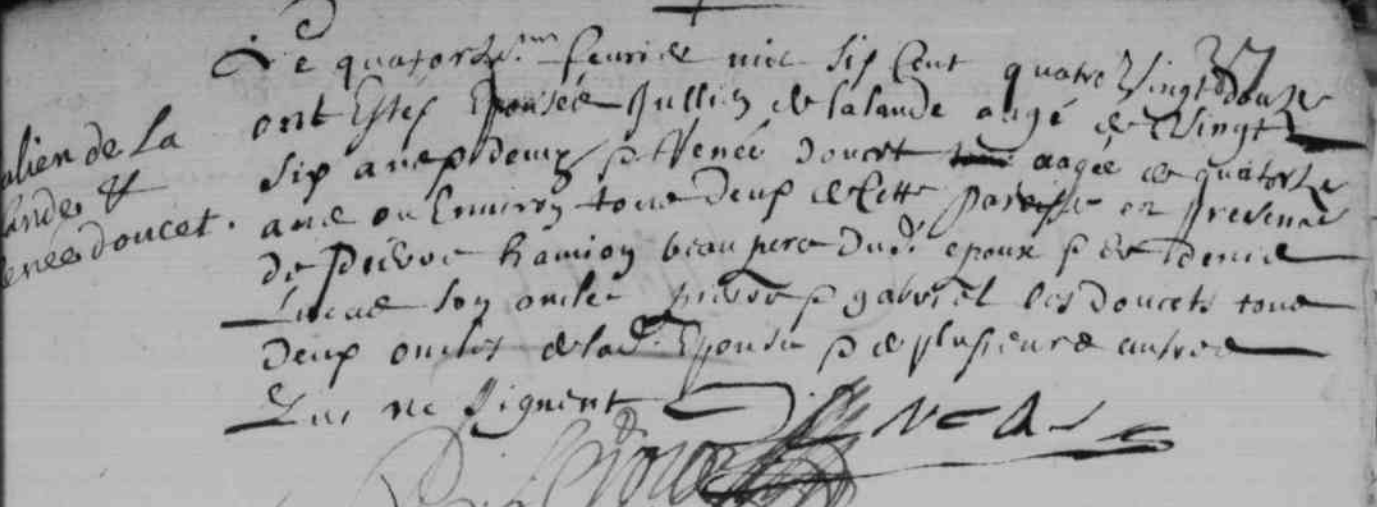 Julien de la
lande &
renee doucet.
Le quatorziesme feurier mil six cent quatre vingt douze
ont Estes Epousée Jullien de lalande aagé de vingt
six ans p deux p Renée doucet aagée de quatorze
ans ou Enuiron tous deux de Cette paroisse en presence
de pierre hamion beau pere dud. epoux p de denis
Lucas son oncle pierre p gabriel les doucets tous
deux oncles de lad. Epouse p de plusieurs autres
Qui ne signent